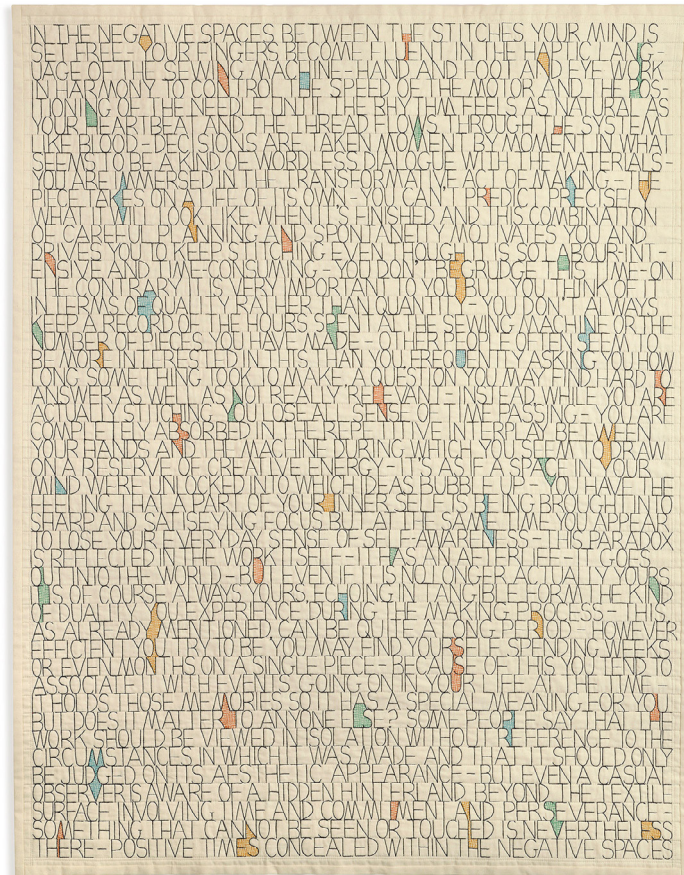 IN THE NEGATIVE SPACES BETWEEN THE STITCHES YOUR MIND IS
SET FREE – YOUR FINGERS BECOME FLUENT IN THE HAPTIC LANG-
UAGE OF THE SEWING MACHINE – HAND AND FOOT AND EYE WORK
IN HARMONY TO CONTROL THE SPEED OF THE MOTOR AND THE POS-
ITIONING OF THE NEEDLE UNTIL THE RHYTHM FEELS AS NATURAL AS
YOUR HEARTBEAT AND THE THREAD FLOWS THROUGH THE SYSTEM
LIKE BLOOD – DECISIONS ARE TAKEN MOMENT BY MOMENT IN WHAT
SEEMS TO BE A KIND OF WORDLESS DIALOGUE WITH THE MATERIALS –
YOU ARE IMMERSED IN THE TRANSFORMATIVE ACT OF MAKING – THE
PIECE TAKES ON A LIFE OF ITS OWN – YOU CAN'T PREDICT PRECISELY
WHAT IT WILL LOOK LIKE WHEN IT'S FINISHED AND THIS COMBINATION
OF CAREFUL PLANNING AND SPONTANEITY MOTIVATES YOU AND
DRIVES YOU TO KEEP STITCHING EVEN THOUGH IT IS SO LABOUR INT-
ENSIVE AND TIME-CONSUMING – YOU DON'T BEGRUDGE THIS TIME – ON
THE CONTRARY IT IS VERY IMPORTANT TO YOU – YOU THINK OF IT
IN TERMS OF QUALITY RATHER THAN QUANTITY – YOU DON'T ALWAYS
KEEP A RECORD OF THE HOURS SPENT AT THE SEWING MACHINE OR THE
NUMBER OF PIECES YOU HAVE MADE – OTHER PEOPLE OFTEN SEEM TO
BE MORE INTERESTED IN THIS THAN YOU FREQUENTLY ASKING YOU HOW
LONG SOMETHING TOOK TO MAKE A QUESTION YOU MAY FIND HARD TO
ANSWER AS WELL AS NOT REALLY RELEVANT – INSTEAD WHILE YOU ARE
ACTUALLY STITCHING YOU LOSE ALL SENSE OF TIME PASSING – YOU ARE
COMPLETELY ABSORBED IN THE REPETITIVE INTERPLAY BETWEEN
YOUR HANDS AND THE MACHINE DURING WHICH YOU SEEM TO DRAW
ON A RESERVE OF CREATIVE ENERGY – IT'S AS IF A SPACE IN YOUR
MIND WERE UNLOCKED INTO WHICH IDEAS BUBBLE UP – YOU HAVE THE
FEELING THAT A PART OF YOUR INNER SELF IS BEING BROUGHT INTO
SHARP AND SATISFYING FOCUS BUT AT THE SAME TIME YOU APPEAR
TO LOSE YOUR EVERYDAY SENSE OF SELF-AWARENESS – THIS PARADOX
IS REFLECTED IN THE WORK ITSELF – IT HAS AN AFTERLIFE – IT GOES
OUT INTO THE WORLD – BUT EVEN IF IT IS NO LONGER ACTUALLY YOURS
IT IS OF COURSE ALWAYS YOURS, HOLDING IN TANGIBLE FORM THE KIND
OF DUALITY YOU EXPERIENCE DURING THE MAKING PROCESS – THIS
AS ALREADY MENTIONED CAN BE QUITE A LONG PERIOD – HOWEVER
EFFICIENT YOU TRY TO BE YOU MAY FIND YOURSELF SPENDING WEEKS
OR EVEN MONTHS ON A SINGLE PIECE – BECAUSE OF THIS YOU TEND TO
ASSOCIATE IT WITH EVENTS GOING ON IN YOUR LIFE AT THE TIME –
THUS THOSE MEMORIES ALSO HAVE A SPECIAL MEANING FOR YOU
BUT DOES IT MATTER TO ANYONE ELSE? SOME PEOPLE SAY THAT THE
WORK SHOULD BE VIEWED IN ISOLATION WITHOUT REFERENCE TO THE
CIRCUMSTANCES IN WHICH IT WAS MADE AND THAT IT SHOULD ONLY
BE JUDGED ON ITS AESTHETIC APPEARANCE – BUT EVEN A CASUAL
OBSERVER IS AWARE OF A HIDDEN HINTERLAND BEYOND THE TEXTILE
SURFACE INVOLVING TIME AND COMMITMENT AND PERSEVERANCE
SOMETHING THAT CANNOT BE SEEN OR TOUCHED IS NEVERTHELESS
THERE – POSITIVE TIMES CONCEALED WITHIN THE NEGATIVE SPACES